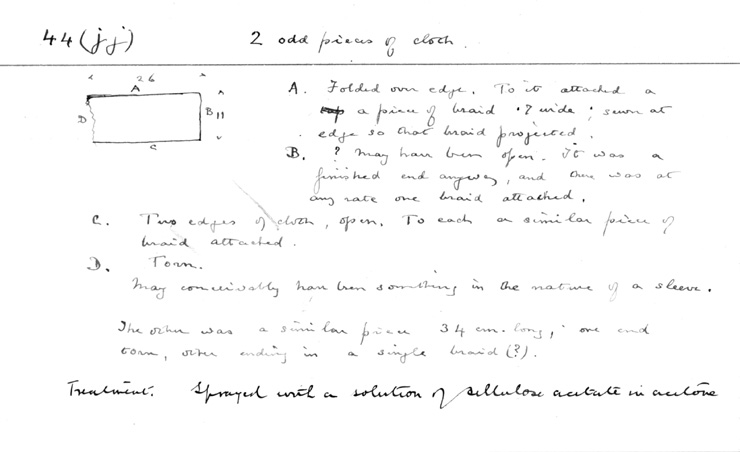 44 (jj) 2 odd pieces of cloth.
26
A
B 11
D
C
A. Folded over edge. To it attached a
a piece of braid .7 wide; sewn at
edge so that braid projected.
B. ? May have been open. It was a
finished end anyway, and there was at
any rate one braid attached.
C. Two edges of cloth, open. To each a similar piece of
braid attached.
D. Torn.
May conceivably have been something in the nature of a sleeve.
The other was a similar piece 34 cm. long, one end
torn, other ending in a single braid (?).
Treatment. Sprayed with a solution of cellulose acetate in acetone